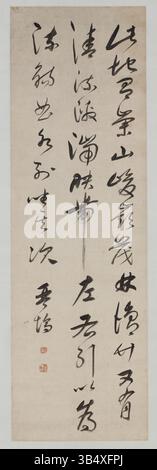 此地有崇山峻嶺茂林脩竹又有
清流激湍映帶左右引以為
流觴曲水列坐其次
alamy
Image ID: 2B3XFPJ
www.alamy.com